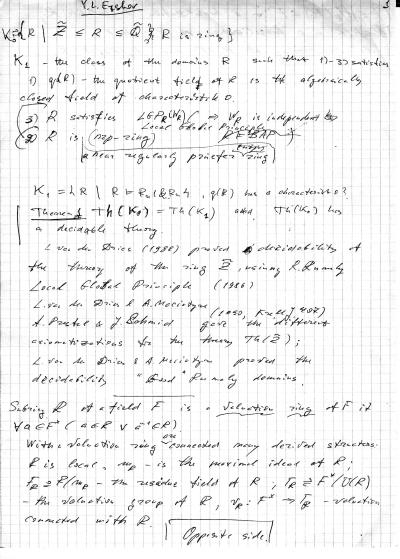 Y. L. Ershov
1
K₀ = {R | Z̃ ≤ R ≤ Q̃, R is ring}
K₁ - the class of the domains R such that 1)-3) satisfies
1) q(R) - the quotient field of R is the algebraically
closed field of characteristic 0.
3) R satisfies LGP_R(W_R) W_R is independent
Local Global Principle
2) R is (mp-ring)
near regularly prüfer ring
K₁ = {R | R ⊨ R₁ & R₂, q(R) has a characteristic 0}.
Theorem Th(K₀) = Th(K₁) and Th(K₀) has
a decidable theory.
L. van den Dries (1988) proved decidability of
the theory of the ring Z̃, using R. Rumely
Local Global Principle (1986)
L. van den Dries & A. Macintyre
(1990, Crelle J 407)
A. Prestel & J. Schmid gave the different
axiomatizations for the theory Th(Z̃);
L. van den Dries & A. Macintyre proved the
decidability "Good" Rumely domains.
Subring R of a field F is a valuation ring of F if
∀a∈F^× (a∈R ∨ a⁻¹∈R)
With a valuation ring one connected many derived structures.
R is local, m_R - is the maximal ideal of R;
F_R ≅ R/m_R - the residue field of R, Γ_R ≅ F^×/U(R)
- the valuation group of R, v_R: F^× → Γ_R - valuation
connected with R.
Opposite side.